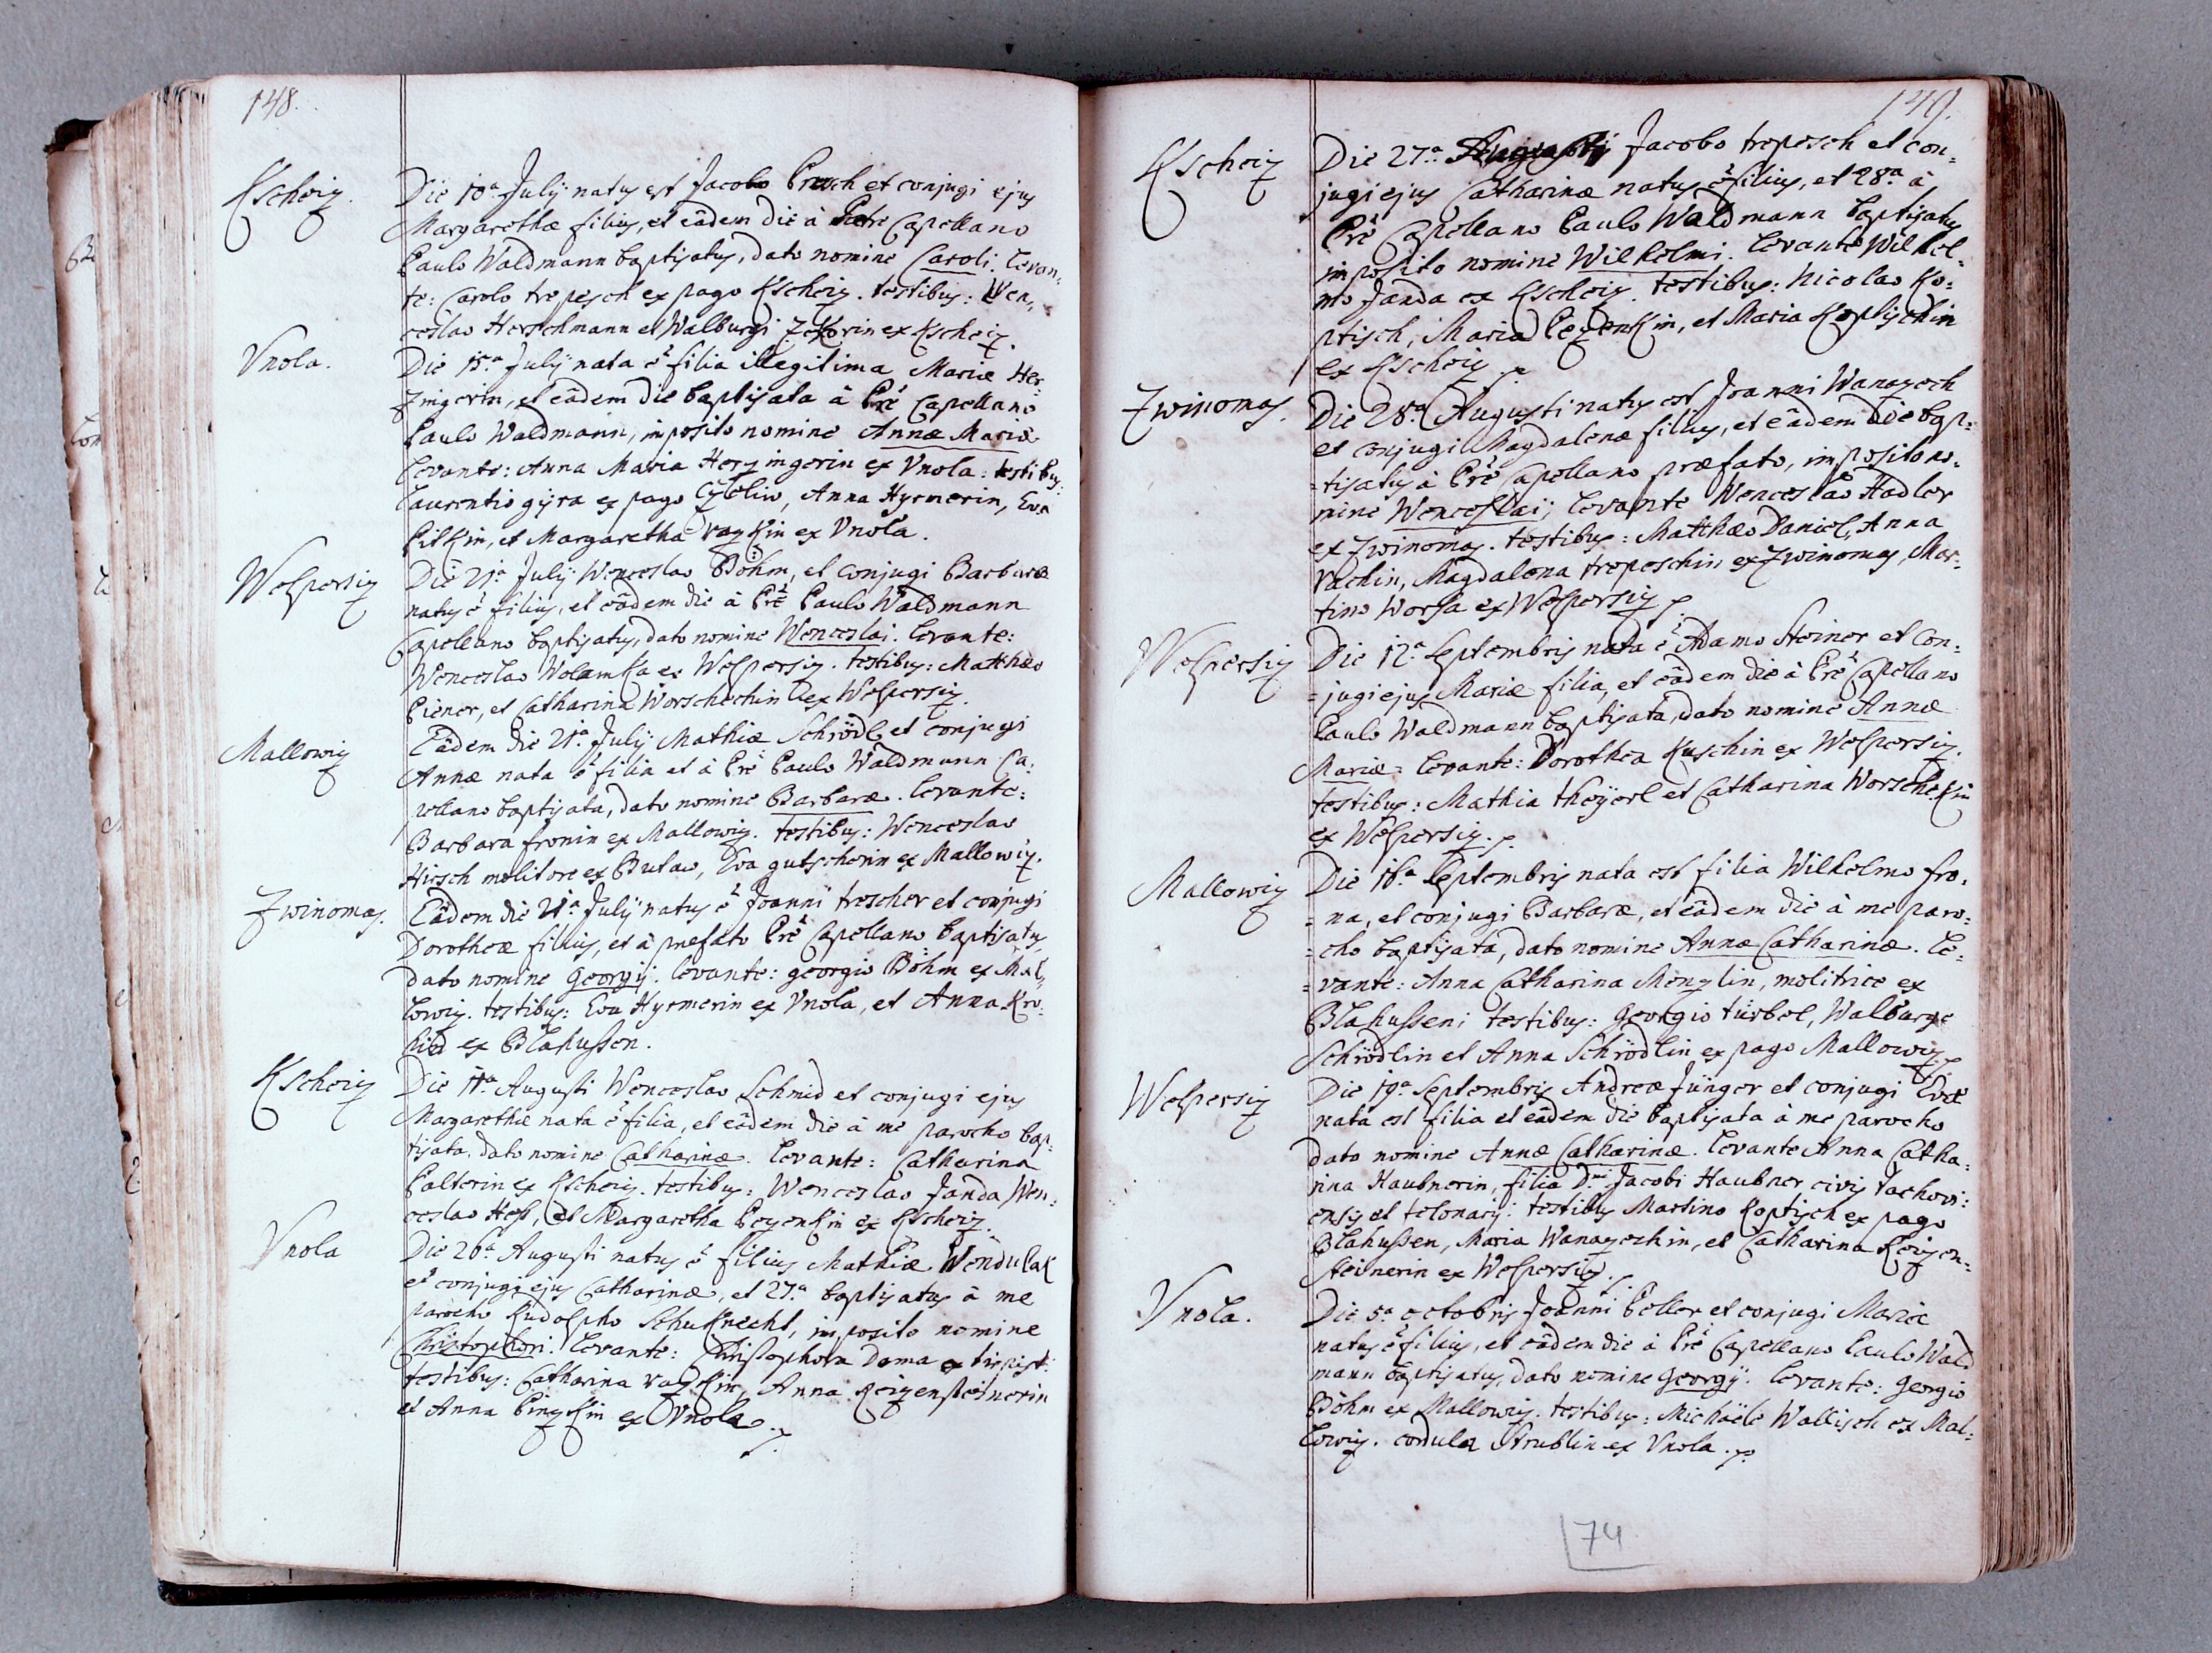 148.
Kscheiz.
Die 10ª July natus est Jacobo Prusch et conjugi ejus
Margarethæ filius, et eâdem die à Patre Capellano
Paulo Waldmann baptisatus, dato nomine Caroli. levan=
te: Carolo trepesch ex pago Kscheiz. testibus: Wen=
ceslao Herschmann et Walburgi ex Kscheiz.
Vnola.
Die 15ª July nata ê filia illegitima Mariæ Her=
zingerin, et eâdem die baptisata à Prê Capellano
Paulo Waldmann, imposito nomine Annæ Mariæ
levante: Anna Maria Herzingerin ex Vnola: testibus:
Laurentio gyra ex pago, Anna Hyrmerin, Eva
Pitkin, et Margaretha vazkin ex Vnola.
Welpersiz
Die 21ª July Wenceslao Böhm, et conjugi Barbaræ
natus ê filius, et eâdem die à Prê Paulo Waldmann
Capellano baptisatus, dato nomine Wenceslai. levante:
Wenceslao Wolamka ex Welpersiz. testibus: Matthæo
Piener, et Catharina Worschechin ex Welpersiz.
Mallowiz
Eâdem die 21ª July Mathiæ Schrödl et conjugi
Annæ nata ê filia et à Prê Paulo Waldmann Ca=
pellano baptisata, dato nomine Barbaræ. levante:
Barbara fronin ex Mallowiz. testibus: Wenceslao
Hirsch molitore ex Butaw, Eva gutscherin ex Mallowiz.
Zwinomas.
Eâdem die 21ª July natus ê Joanni trescher et conjugi
Dorotheæ filius, et à præfato Prê Capellano baptisatus,
dato nomine Georgij. levante: georgio Böhm ex Mal=
lowiz. testibus: Eva Hyrmerin ex Vnola, et Anna Kro=
hid ex Blahussen.
Kscheiz
Die 11ª Augusti Wenceslao Schmid et conjugi ejus
Margarethæ nata ê filia, et eâdem die à me parocho bap=
tisata. dato nomine Catharinæ. levante: Catharina
Palterin ex Kscheiz. testibus: Wenceslao Janda, Wen=
ceslao Hess, et Margaretha Pezenkin ex Kscheiz.
Vnola
Die 26ª Augusti natus ê filius Mathiæ Wendulak
et conjugi ejus Catharinæ, et 27ª baptisatus à me
parocho Rudolpho Schuknecht, imposito nomine
Christophori. levante: Christophoro Dama ex
testibus: Catharina vazkin, Anna Reizensteinerin
et Anna Pinzkin ex Vnola.
149.
Kscheiz
Die 27ª Jacobo trepesch et con=
jugi ejus Catharinæ natus ê filius, et 28ª à
Prê Capellano Paulo Waldmann baptisatus
imposito nomine Wilhelmi. levante Wilhel=
mo Janda ex Kscheiz. testibus: Nicolao Ko=
ptisch, Maria Pezenkin, et Maria Koptischin
ex Kscheiz.
Zwinomas.
Die 28ª Augusti natus est Joanni Wanazech
et conjugi Magdalenæ filius, et eâdem die bap=
=tisatus à Prê Capellano præfato, imposito no=
mine Wenceslai, levante Wenceslao Hadler
ex Zwinomas. testibus: Matthæo Daniel, Anna
vachin, Magdalena trepeschin ex Zwinomas, Mar=
tino Worsa ex Welpersiz
Welpersiz
Die 12ª Septembris nata ê Adamo Steiner et con=
=jugi ejus Mariæ filia, et eâdem die à Prê Capellano
Paulo Waldmann baptisata, dato nomine Annæ
Mariæ = levante: Dorothea Kuschin ex Welpersiz.
testibus: Mathia theyerl et Catharina Worschekin
ex Welpersiz.
Mallowiz
Die 16ª Septembris nata est filia Wilhelmo fro=
=na, et conjugi Barbaræ, et eâdem die à me paro=
=cho baptisata, dato nomine Annæ Catharinæ. le=
=vante: Anna Catharina Menzlin, molitrice ex
Blahussen; testibus: Georgio türbel, Walburge
Schrödlin et Anna Schrödlin ex pago Mallowiz.
Welpersiz
Die 19ª Septembris Andreæ Jünger et conjugi Evæ
nata est filia et eâdem die baptisata à me parocho
dato nomine Annæ Catharinæ. levante Anna Catha=
rina Haubnerin, filia Dni Jacobi Haubner civis Tachovi=
ensis et telonarij: testibus Martino Koptisch ex pago
Blahussen, Maria Wanazechin, et Catharina Reizen=
steinerin ex Welpersiz.
Vnola.
Die 5ª octobris Joanni Peller et conjugi Mariæ
natus ê filius, et eâdem die à Prê Capellano Paulo Wald
mann baptisatus, dato nomine Georgij. levante: Georgio
Böhm ex Mallowiz. testibus: Michaële Wallisch ex Mal=
lowiz. cordula Strublin ex Vnola.
74